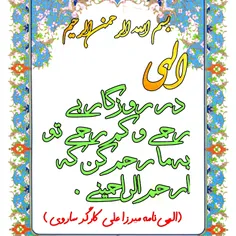 بسم الله الرحمن الرحیم
الهی
در روزگار بی
رحمی و کم رحمی تو
به ما رحم کن که
ارحم الراحمینی .
(الهی نامه میرزا علی کارگر ساروی)